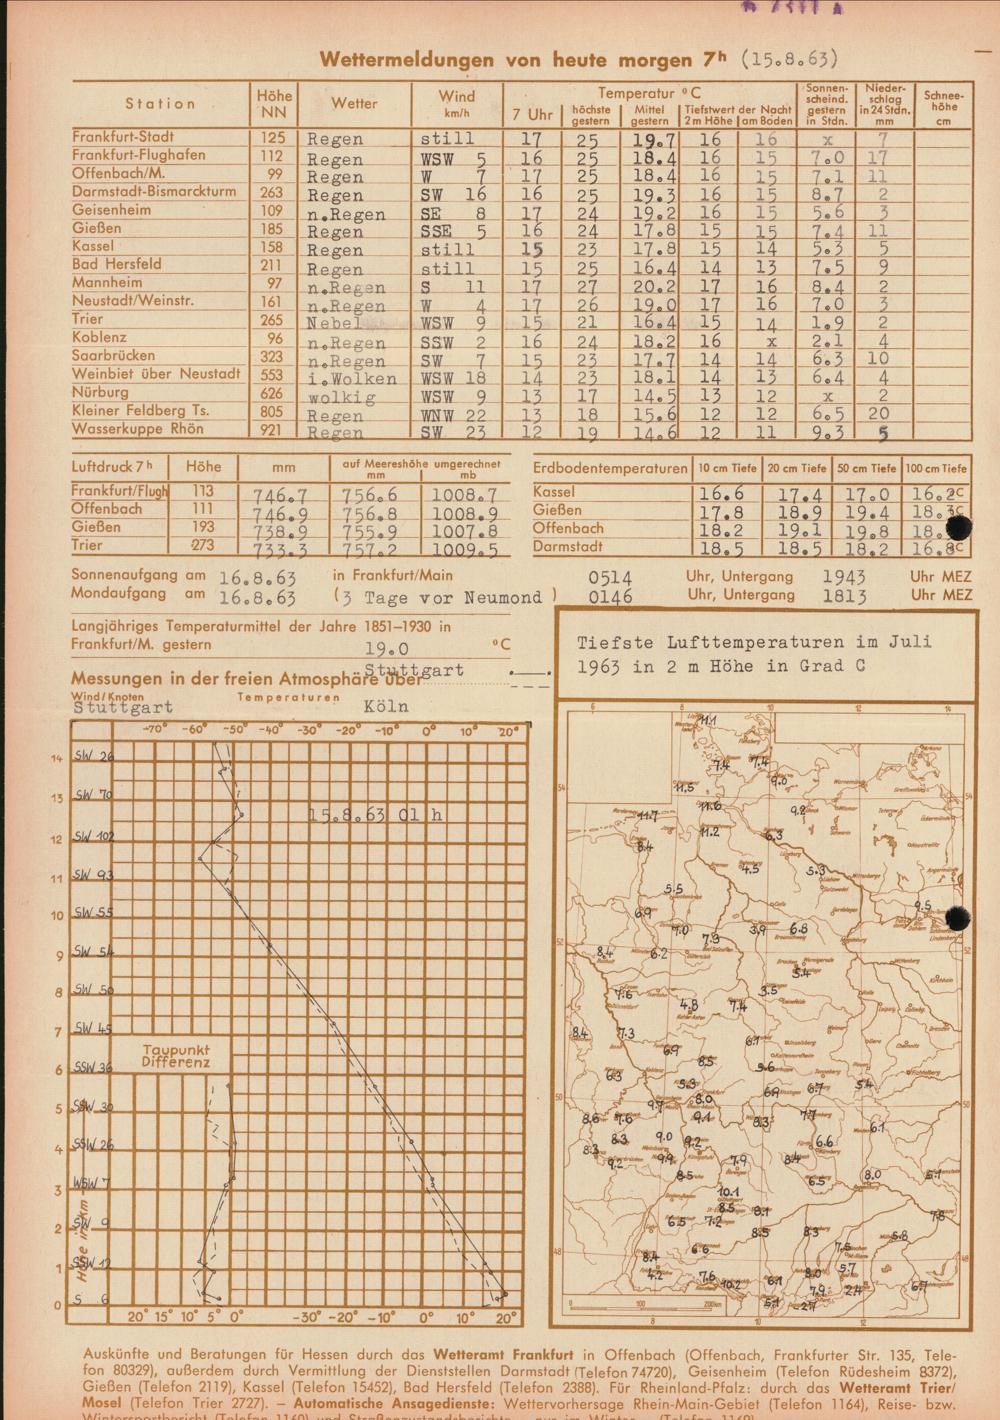 Wettermeldungen von heute morgen 7h (15.8.63)
Station Höhe NN Wetter Wind km/h Temperatur °C 7 Uhr höchste gestern Mittel gestern Tiefstwert der Nacht 2m Höhe am Boden Sonnen-scheind. gestern in Stdn. Nieder-schlag in 24 Stdn. mm Schnee-höhe cm
Frankfurt-Stadt 125 Regen still 17 25 19.7 16 16 x 7
Frankfurt-Flughafen 112 Regen WSW 5 16 25 18.4 16 15 7.0 17
Offenbach/M. 99 Regen W 7 17 25 18.4 16 15 7.1 11
Darmstadt-Bismarckturm 263 Regen SW 16 16 25 19.3 16 15 8.7 2
Geisenheim 109 n.Regen SE 8 17 24 19.2 16 15 5.6 3
Gießen 185 Regen SSE 5 16 24 17.8 15 15 7.4 11
Kassel 158 Regen still 15 23 17.8 15 14 5.3 5
Bad Hersfeld 211 Regen still 15 25 16.4 14 13 7.5 9
Mannheim 97 n.Regen S 11 17 27 20.2 17 16 8.4 2
Neustadt/Weinstr. 161 n.Regen W 4 17 26 19.0 17 16 7.0 3
Trier 265 Nebel WSW 9 15 21 16.4 15 14 1.9 2
Koblenz 96 n.Regen SSW 2 16 24 18.2 16 x 2.1 4
Saarbrücken 323 n.Regen SW 7 15 23 17.7 14 14 6.3 10
Weinbiet über Neustadt 553 i.Wolken WSW 18 14 23 18.1 14 13 6.4 4
Nürburg 626 wolkig WSW 9 13 17 14.5 13 12 x 2
Kleiner Feldberg Ts. 805 Regen WNW 22 13 18 15.6 12 12 6.5 20
Wasserkuppe Rhön 921 Regen SW 23 12 19 14.6 12 11 9.3 5
Luftdruck 7h Höhe mm auf Meereshöhe umgerechnet mm mb
Frankfurt/Flugh 113 746.7 756.6 1008.7
Offenbach 111 746.9 756.8 1008.9
Gießen 193 738.9 755.9 1007.8
Trier 273 733.3 757.2 1009.5
Erdbodentemperaturen 10 cm Tiefe 20 cm Tiefe 50 cm Tiefe 100 cm Tiefe
Kassel 16.6 17.4 17.0 16.2 °C
Gießen 17.8 18.9 19.4 18.3 °C
Offenbach 18.2 19.1 19.8 18.
Darmstadt 18.5 18.5 18.2 16.8 °C
Sonnenaufgang am 16.8.63 in Frankfurt/Main 0514 Uhr, Untergang 1943 Uhr MEZ
Mondaufgang am 16.8.63 (3 Tage vor Neumond ) 0146 Uhr, Untergang 1813 Uhr MEZ
Langjähriges Temperaturmittel der Jahre 1851–1930 in
Frankfurt/M. gestern 19.0 °C
Messungen in der freien Atmosphäre über Stuttgart
Wind/Knoten Temperaturen
Stuttgart Köln
Tiefste Lufttemperaturen im Juli
1963 in 2 m Höhe in Grad C
-70° -60° -50° -40° -30° -20° -10° 0° 10° 20°
14 SW 26
13 SW 70
15.8.63 01 h
12 SW 102
11 SW 93
10 SW 55
9 SW 54
8 SW 50
7 SW 45
Taupunkt
Differenz
6 SSW 36
5 SSW 30
4 SSW 26
3 WSW 7
2 SW 9
1 SSW 12
0 S 6
Höhe in km
20° 15° 10° 5° 0° -30° -20° -10° 0° 10° 20°
6 8 10 12 14
11.1
7.4 7.4
11.5 9.0
11.7 11.6 9.2
8.4 11.2 6.3
4.5 5.3
5.5
6.9 9.5
7.0 7.3 3.9 6.8
8.4 6.2 5.4
7.6 4.8 7.4 3.5
8.4 7.3
6.9 8.5 6.1
6.3 5.3 5.6 6.7 5.4
9.7 8.0 6.9
8.6 7.6 9.1 8.3 7.7 6.1
8.3 8.3 9.0 9.2 6.6
9.2 9.9 7.9 8.4
8.5 6.5 8.0 5.1
10.1
6.5 8.5 7.2 8.1 7.8
8.5 8.3 5.8
8.4 6.6 7.5
4.2 7.6 10.2 6.1 8.0 5.7
5.1 7.9 2.4 6.7
-2.7
0 100 200km
8 10 12
Auskünfte und Beratungen für Hessen durch das Wetteramt Frankfurt in Offenbach (Offenbach, Frankfurter Str. 135, Tele-
fon 80329), außerdem durch Vermittlung der Dienststellen Darmstadt (Telefon 74720), Geisenheim (Telefon Rüdesheim 8372),
Gießen (Telefon 2119), Kassel (Telefon 15452), Bad Hersfeld (Telefon 2388). Für Rheinland-Pfalz: durch das Wetteramt Trier/
Mosel (Telefon Trier 2727). – Automatische Ansagedienste: Wettervorhersage Rhein-Main-Gebiet (Telefon 1164), Reise- bzw.
Wintersportbericht (Telefon 1160) und Straßenzustandsberichte – nur im Winter – (Telefon 1169)